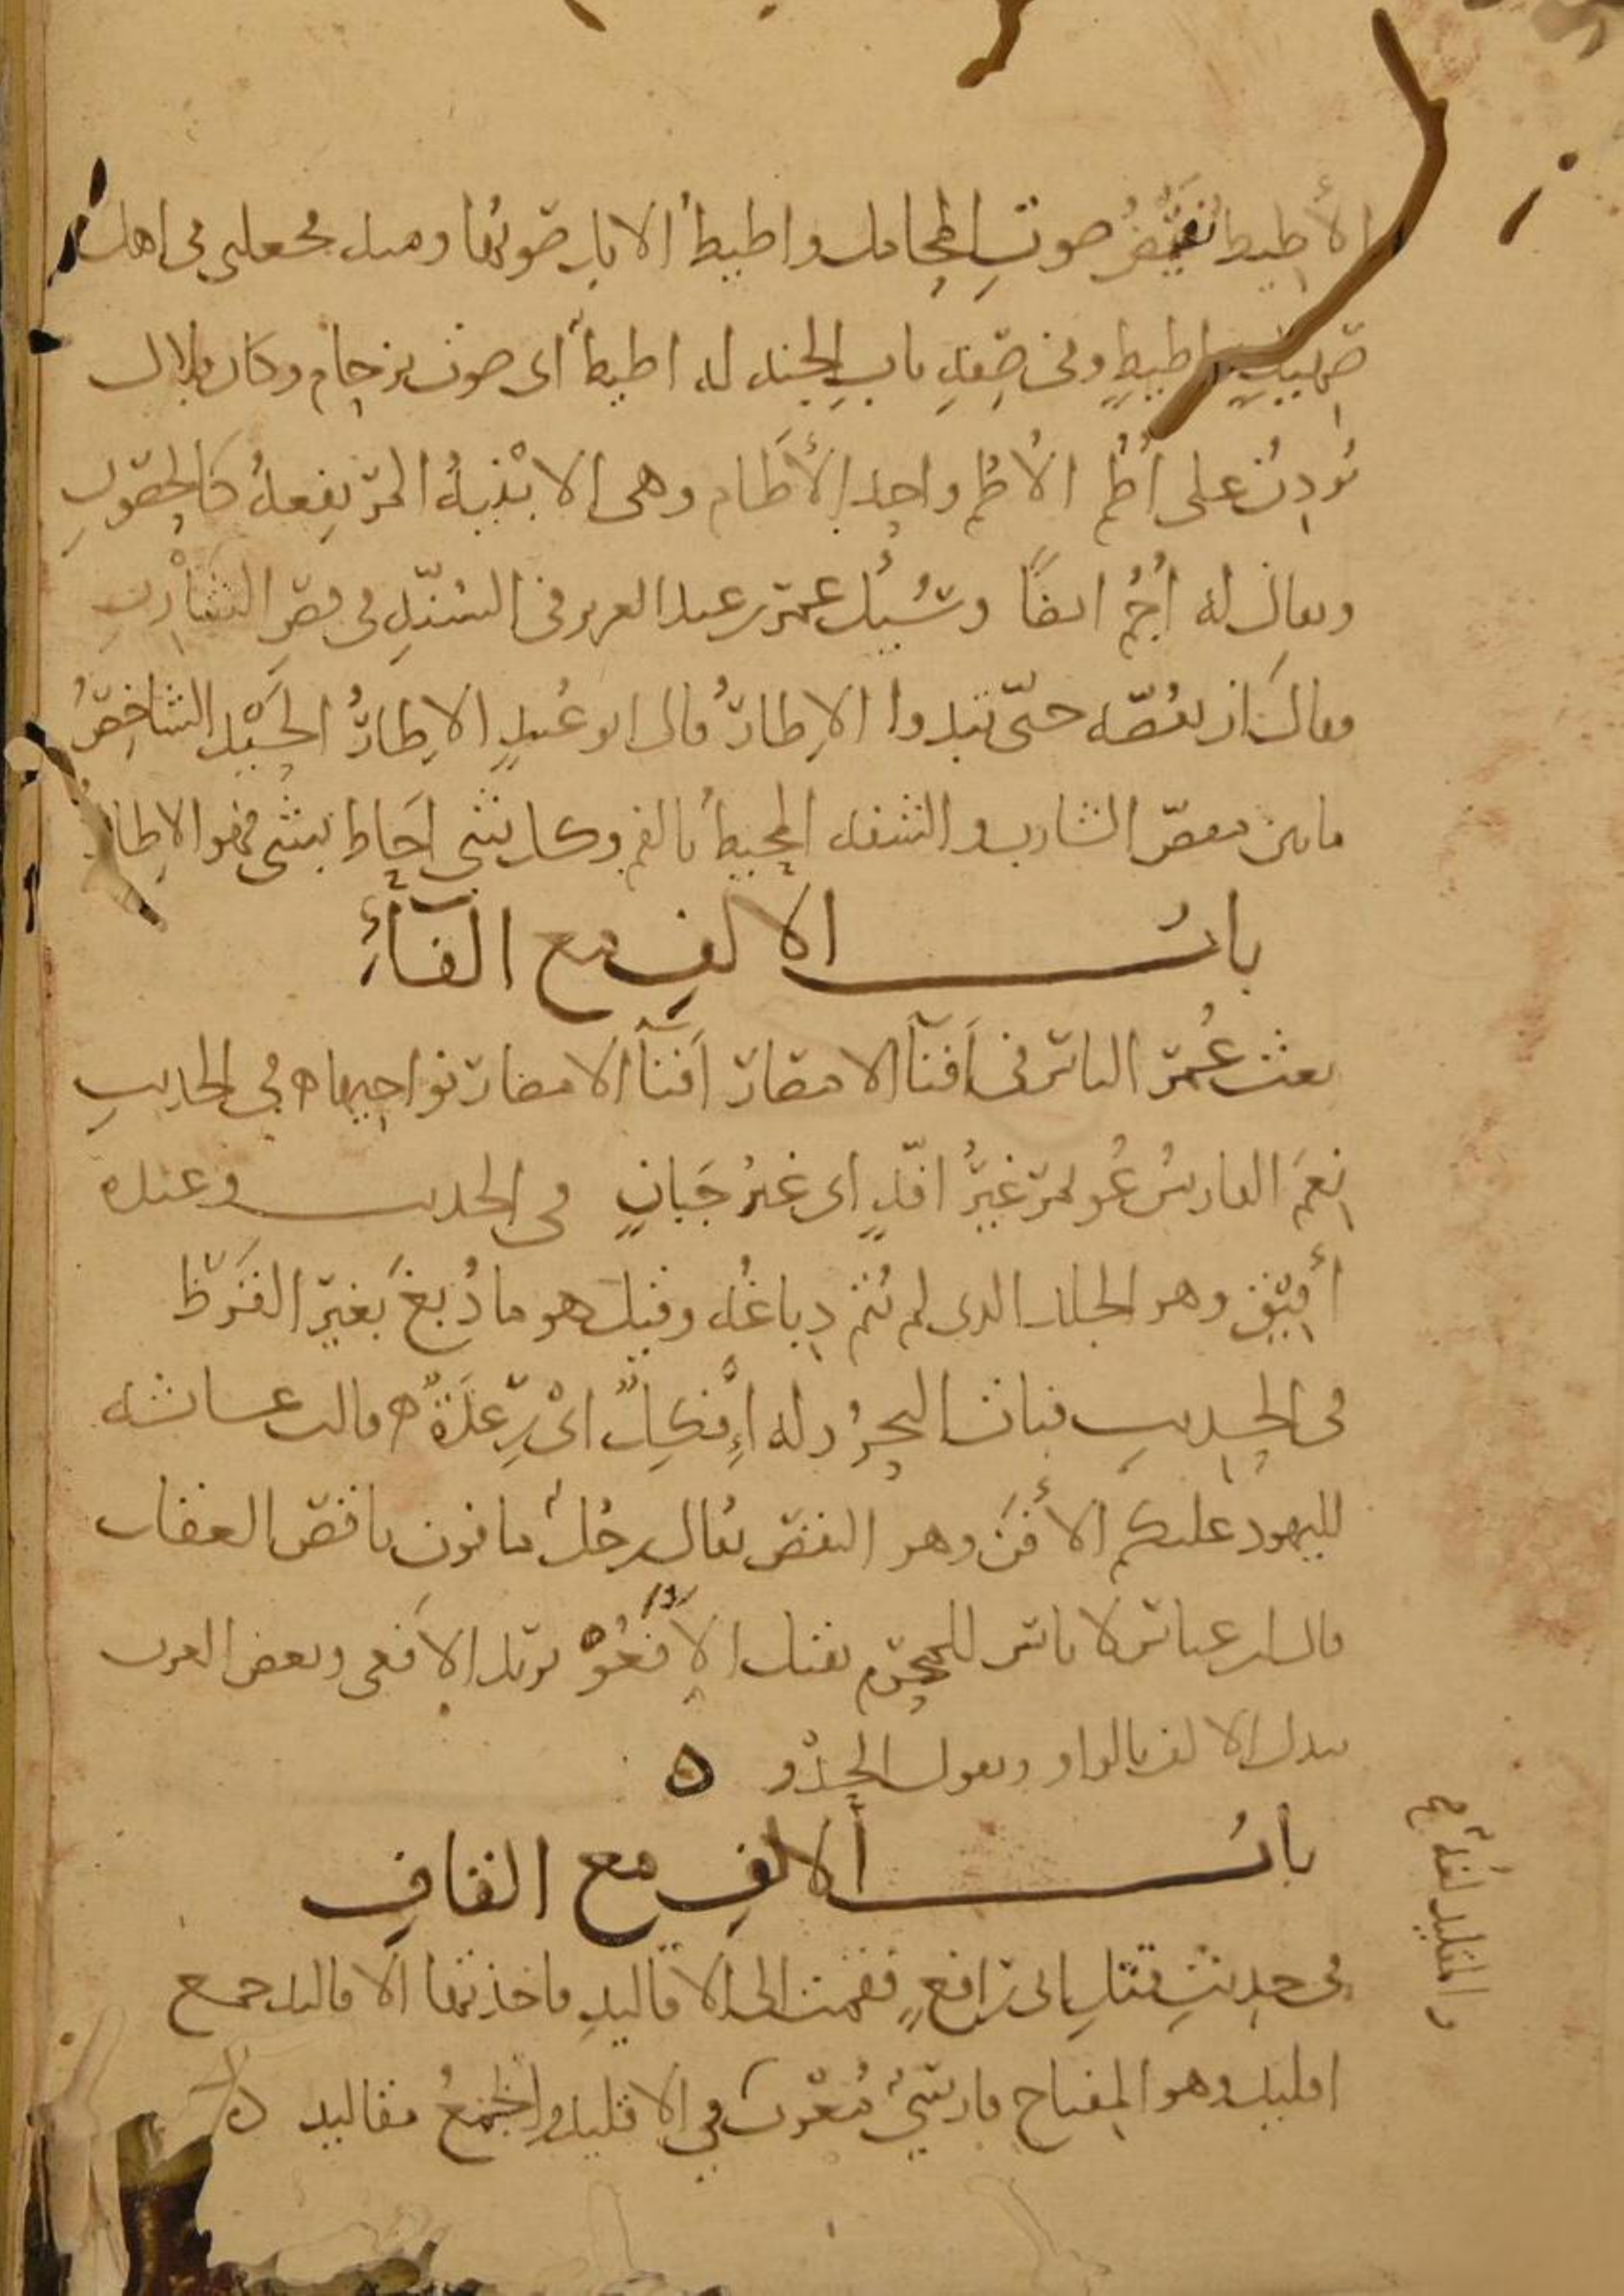 الأطيط نقيض صوت المحامل واطيط الابل صوتها ومنه فجعلني في اهل
صهيل واطيط وفي صفة باب الجنة له اطيط اي صوت بزحام وكان بلال
يؤذن على أُطُم الأُطم واحد الأطام وهي الابنية المرتفعة كالحصون
ويقال له أُجُم ايضًا وسُئِل عمر بن عبد العزيز في السنة في قص الشارب
فقال ان تقصه حتى تبدوا الإطار قال ابو عبيد الإطار الحَيْد الشاخص
ما بين مقص الشارب والشفة المحيط بالفم وكل شي احاط بشي فهو الاطار
باب الالف مع الفاء
بعث عُمر الناس في أفنآ الامصار أفنآ الامصار نواحيها ه في الحديث
نِعْمَ الفارس عُويمر غيرُ افّةٍ اي غيرُ جَبانٍ في الحديث وعنده
أفيق وهو الجلد الذي لم يتم دِباغُه وقيل هو ما دُبغ بغير القَرَظ
في الحديث فبات البحر وله أفكل اي رِعدَة ه قالت عائشة
لليهود عليكم الأفن وهو النقص يقال رجل مافون ناقص العقل
قال ابن عباس لا باس للمحرم بقتل الأفعو يريد الافعى وبعض العرب
يبدل الالف بالواو ويقول الحِدَوْ ه
باب الالف مع القاف
في حديث قتل ابي رافع فقمت الى الاقاليد فاخذتها الاقاليد جمع
اقليد وهو المفتاح فارسيٌّ مُعرّب في الاقليد والجمع مقاليد ه
والمقليد لغة صح